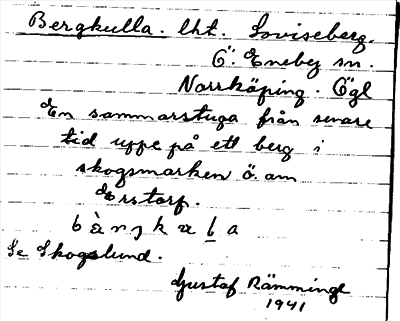 Bergkulla. lht. Loviseberg.
Ö. Eneby sn.
Norrköping. Ögl
En sommarstuga från senare
tid uppe på ett berg i
skogsmarken ö. om
Erstorp.
Se Skogslund.
Gustaf Rämminge
1941